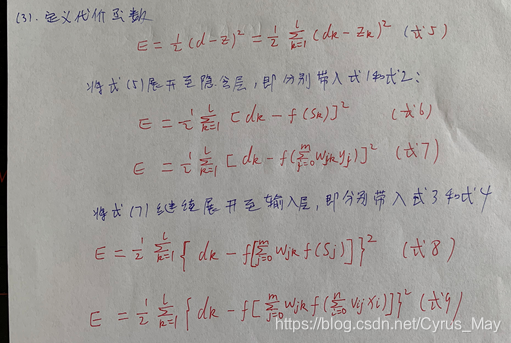 (3). 定义代价函数
E = 1/2 (d-z)² = 1/2 Σ_{k=1}^{L} (dk - zk)² (式5)
将式(5)展开至隐含层,即分别带入式1和式2:
E = 1/2 Σ_{k=1}^{L} [dk - f(Sk)]² (式6)
E = 1/2 Σ_{k=1}^{L} [dk - f(Σ_{j=0}^{m} wjk yj)]² (式7)
将式(7)继续展开至输入层,即分别带入式3和式4
E = 1/2 Σ_{k=1}^{L} { dk - f[Σ_{j=0}^{m} wjk f(Sj)] }² (式8)
E = 1/2 Σ_{k=1}^{L} { dk - f[Σ_{j=0}^{m} wjk f(Σ_{i=0}^{n} vij xi)] }² (式9)
https://blog.csdn.net/Cyrus_May